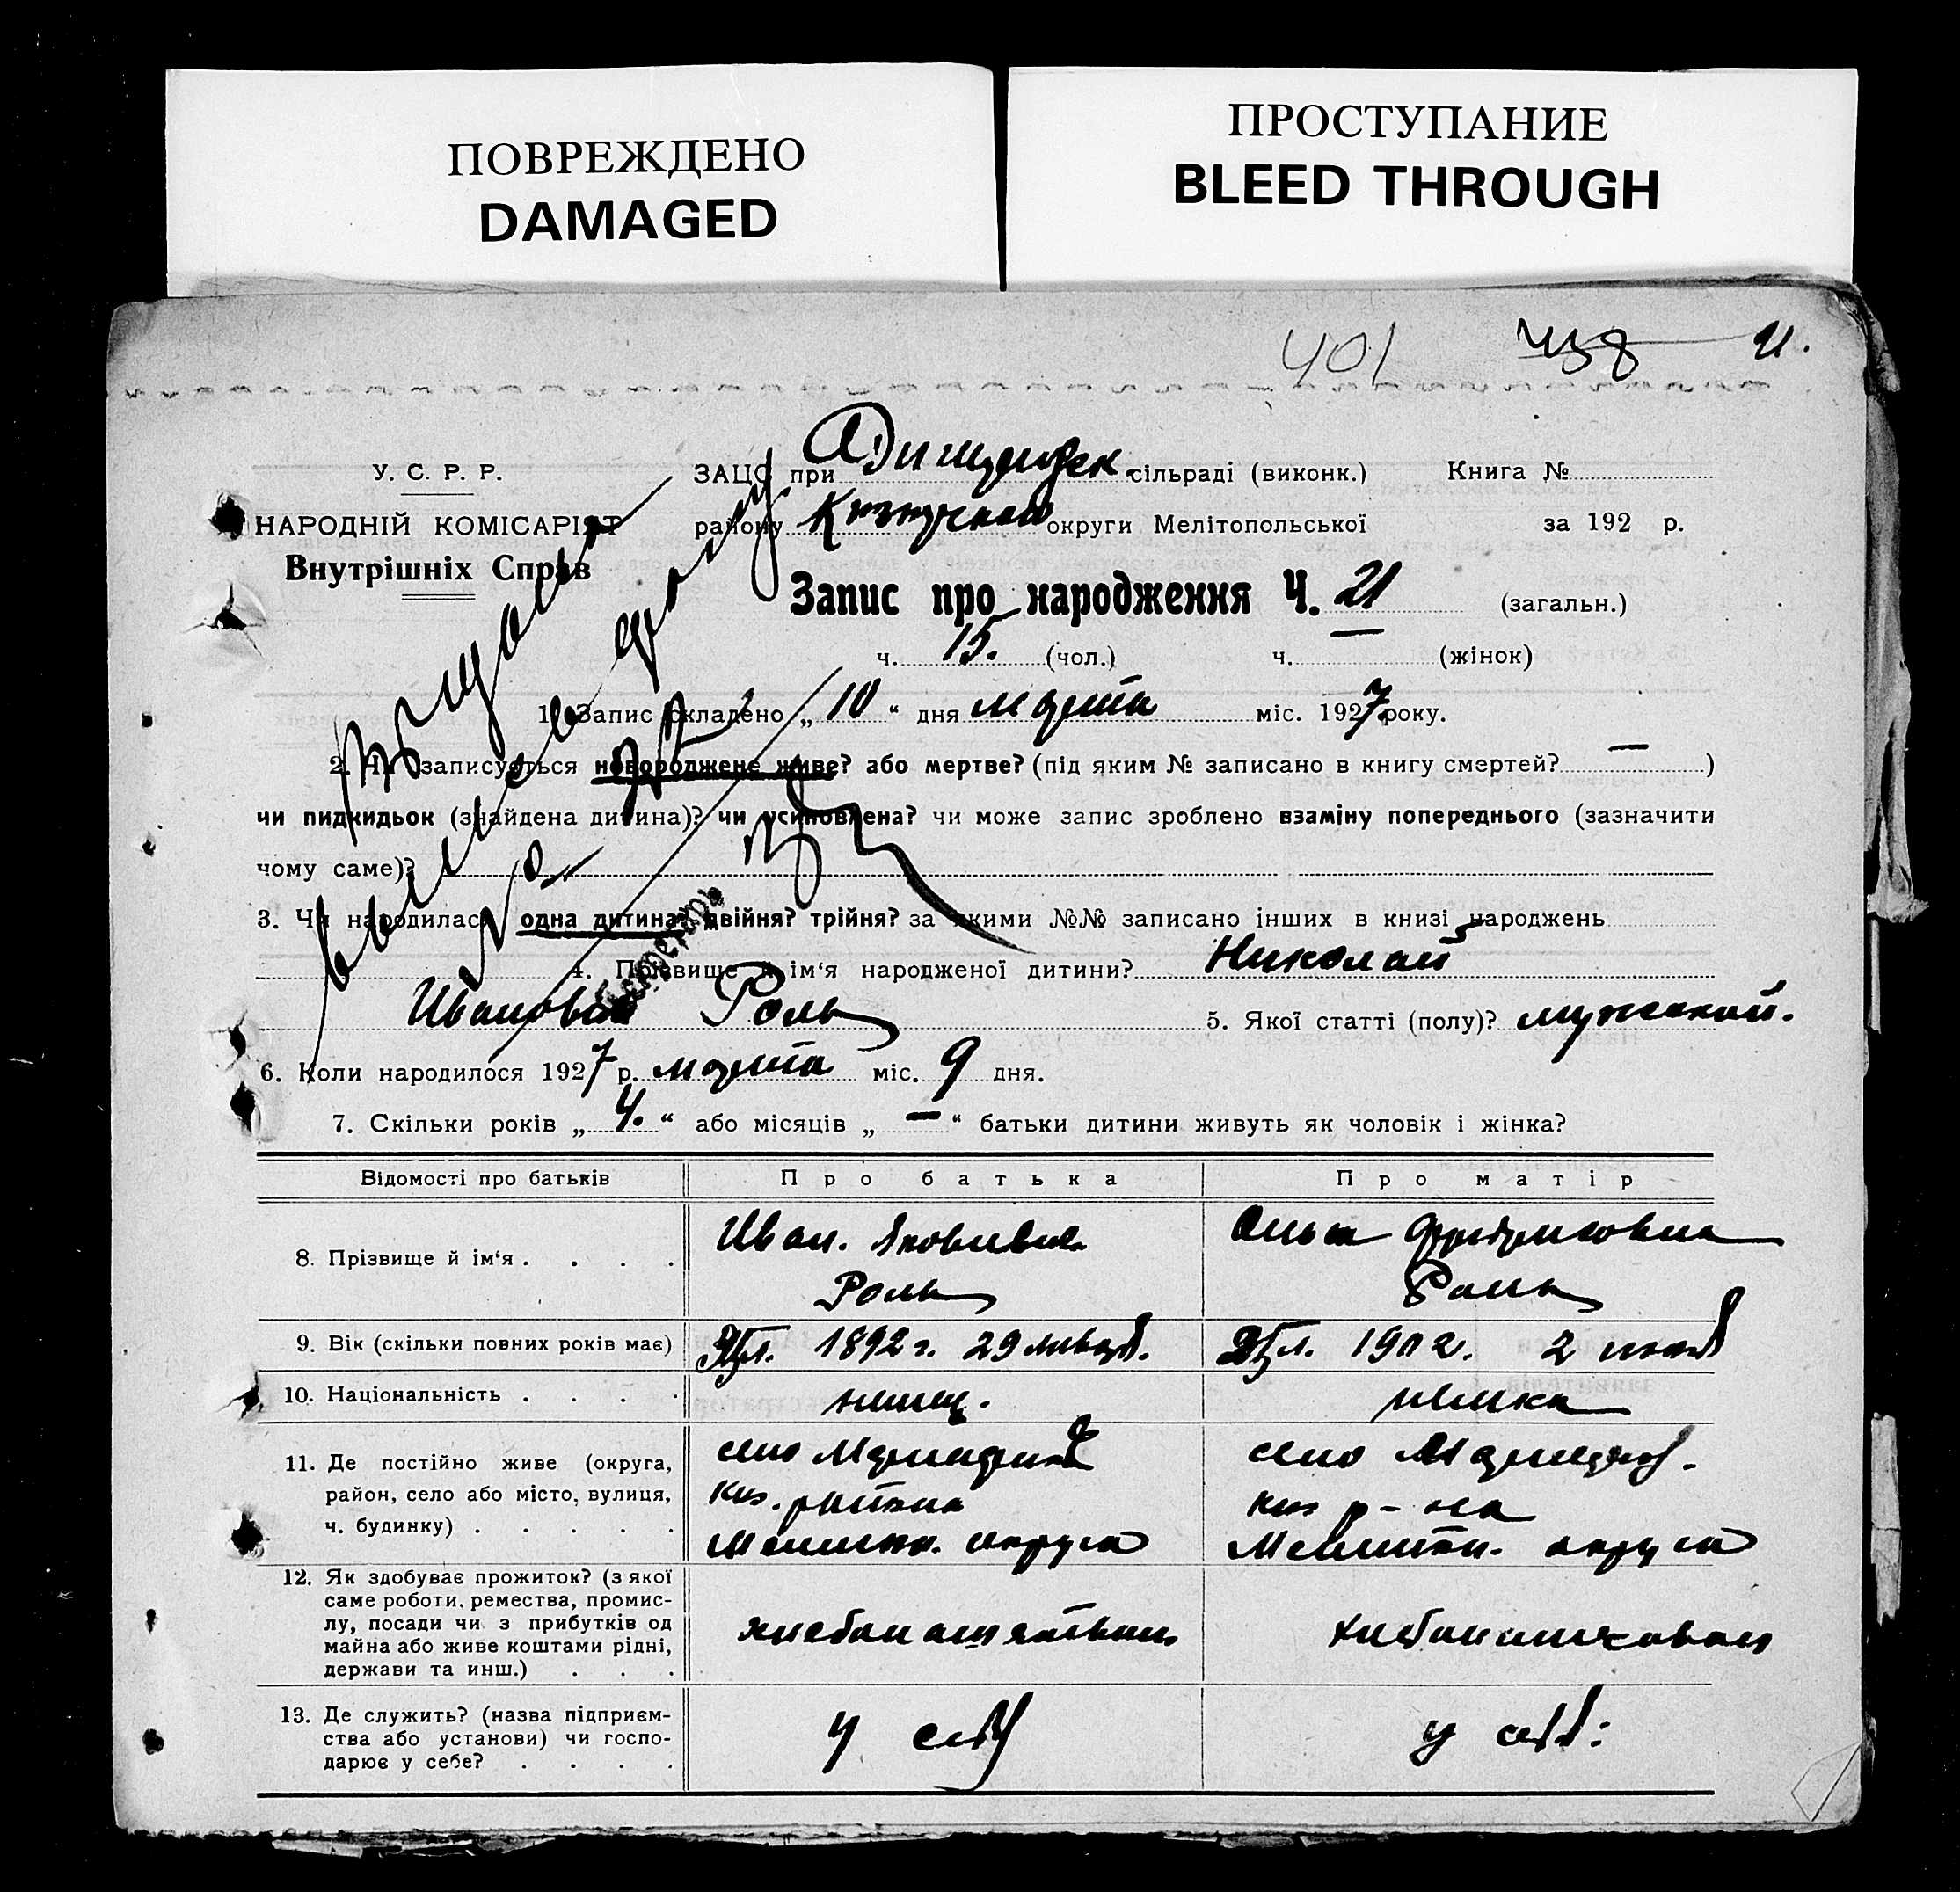 ПОВРЕЖДЕНО
DAMAGED
ПРОСТУПАНИЕ
BLEED THROUGH
401 438 21.
У. С. Р. Р.
НАРОДНІЙ КОМІСАРІЯТ
Внутрішніх Справ
ЗАЦС при сільраді (виконк.) Книга №
району округи Мелітопольської за 192 р.
Запис про народження Ч. 21 (загальн.)
ч. 15. (чол.) ч. — (жінок)
1. Запис складено „ 10 “ дня марта міс. 1927 року.
2. Чи записується новороджене живе? або мертве? (під яким № записано в книгу смертей? — )
чи пидкидьок (знайдена дитина)? чи усиновлена? чи може запис зроблено взаміну попереднього (зазначити
чому саме)?
3. Чи народилась одна дитина? двійня? трійня? за якими №№ записано інших в книзі народжень
4. Прізвище й ім‘я народженої дитини? Николай
Иванович Роль 5. Якої статті (полу)? мужской.
Секретарь
6. Коли народилося 1927 р. марта міс. 9 дня.
7. Скільки років „ 4. “ або місяців „ — “ батьки дитини живуть як чоловік і жінка?
Відомості про батьків Про батька Про матір
8. Прізвище й ім‘я . . . . Иван. Яковлевич Ольга Фридриховна
Роль Роль
9. Вік (скільки повних років має) 1892 г. 29 январ. 1902. 2
10. Національність . . . . немец. немка
11. Де постійно живе (округа, село село
район, село або місто, вулиця, Киз. района Киз р-на
ч. будинку) . . . . . Мелитоп. округа Мелитоп. округа
12. Як здобуває прожиток? (з якої
саме роботи, ремества, промис-
лу, посади чи з прибутків од хлебопашеством хлебопашеством
майна або живе коштами рідні,
держави та инш.) . . .
13. Де служить? (назва підприєм-
ства або установи) чи госпо- у себя у себя:
дарює у себе? . . . .